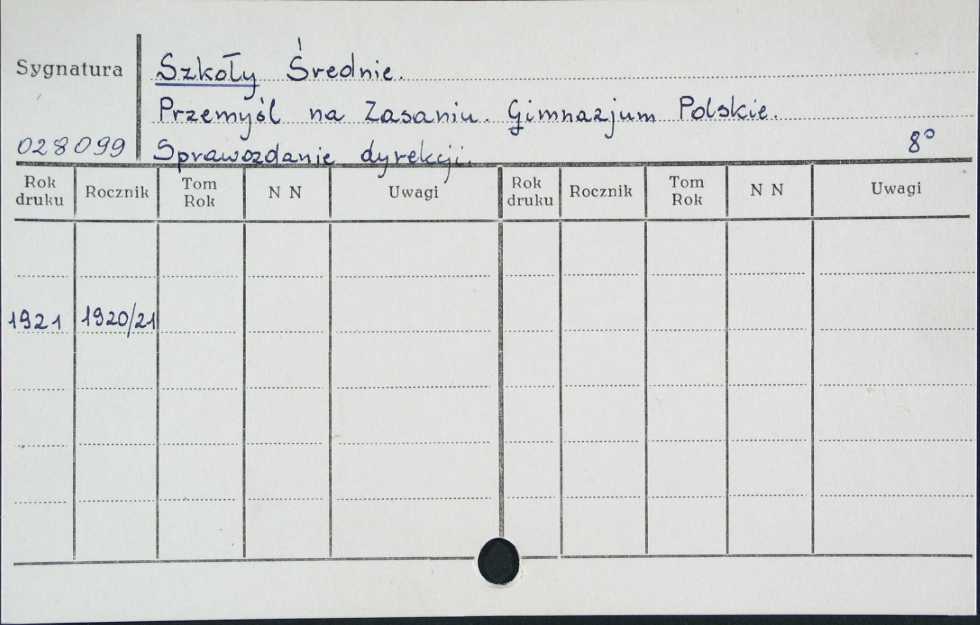 Sygnatura
Szkoły Średnie.
Przemyśl na Zasaniu. Gimnazjum Polskie.
028099
Sprawozdanie dyrekcji.
8°
Rok druku Rocznik Tom Rok N N Uwagi Rok druku Rocznik Tom Rok N N Uwagi
1921 1920/21